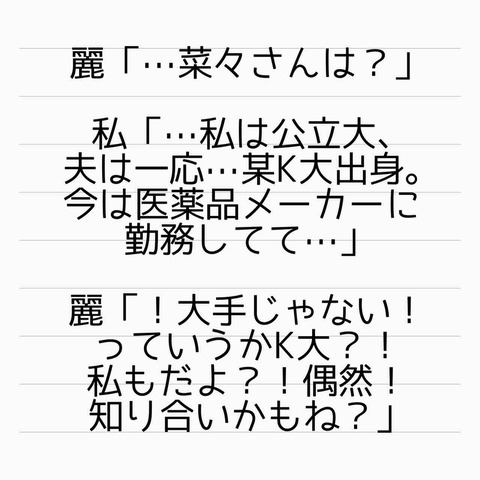 麗「…菜々さんは？」
私「…私は公立大、
夫は一応…某K大出身。
今は医薬品メーカーに
勤務してて…」
麗「！大手じゃない！
っていうかK大？！
私もだよ？！偶然！
知り合いかもね？」